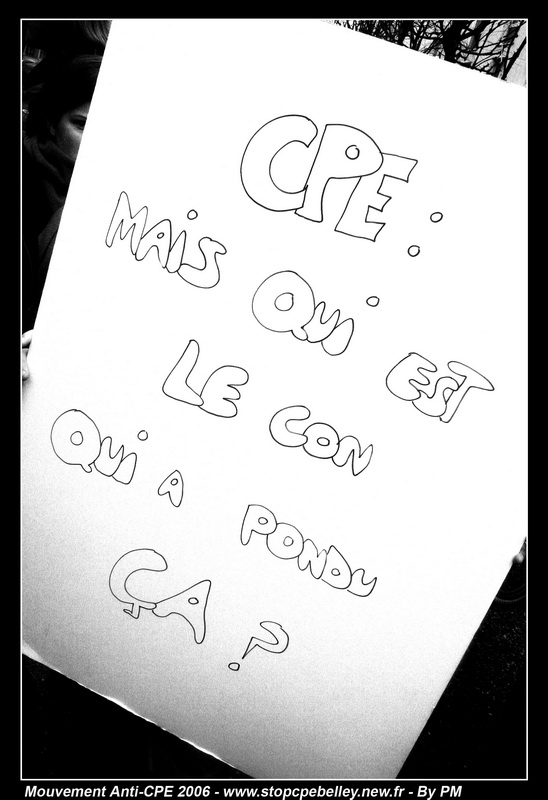 CPE :
MAiS QUi EST
LE CON
QUi A PONDU
ÇA ?
Mouvement Anti-CPE 2006 - www.stopcpebelley.new.fr - By PM